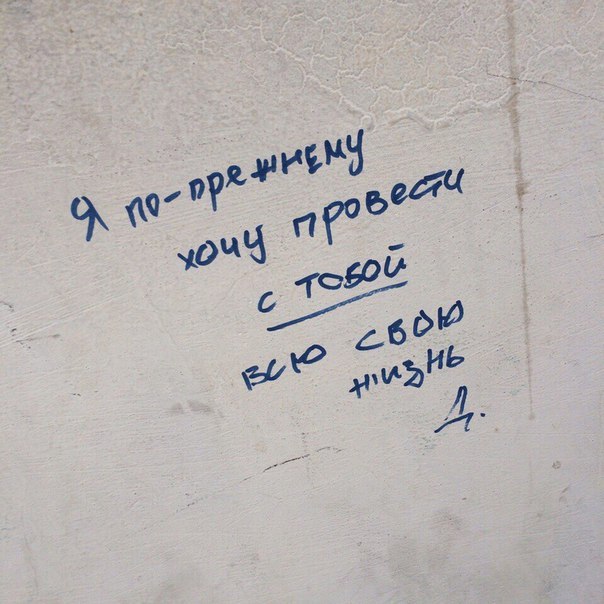 Я по-прежнему
хочу провести
с тобой
всю свою
жизнь
Д.